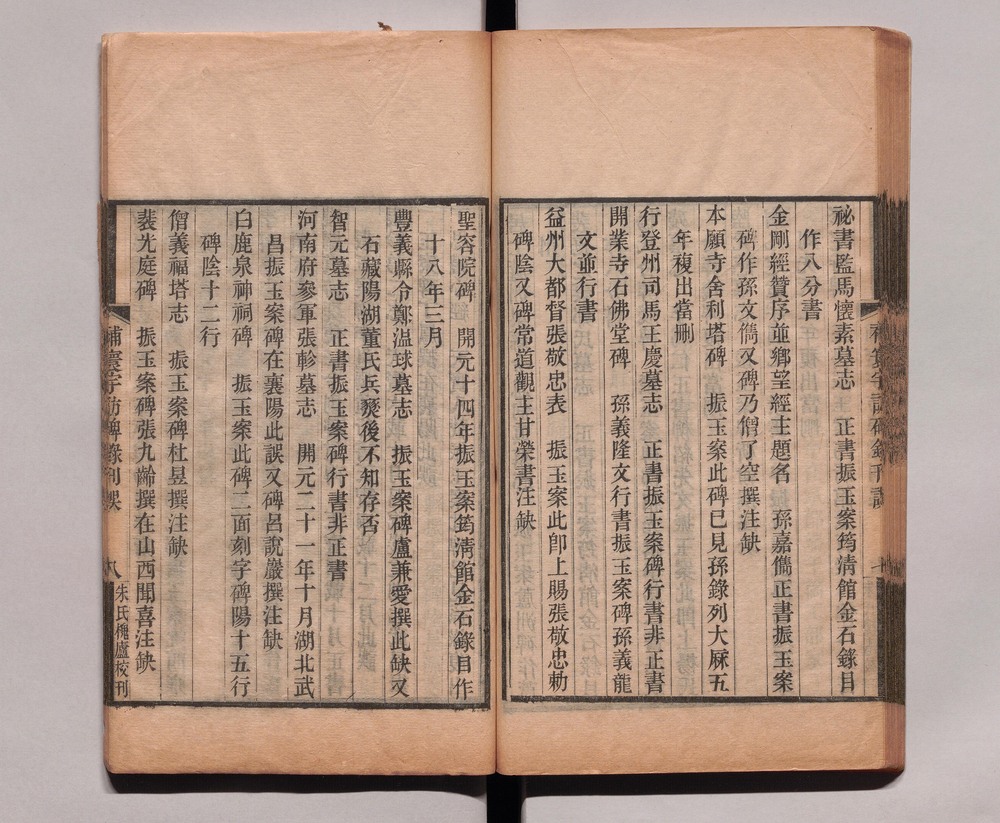 祕書監馬懷素墓志　正書振玉案筠清館金石錄目
作八分書
金剛經贊序並鄉望經主題名　孫嘉儁正書振玉案
碑作孫文儁又碑乃僧了空撰注缺
本願寺舍利塔碑　振玉案此碑已見孫錄列大厤五
年複出當刪
行登州司馬王慶墓志　正書振玉案碑行書非正書
開業寺石佛堂碑　孫義隆文行書振玉案碑孫義龍
文並行書
益州大都督張敬忠表　振玉案此卽上賜張敬忠勅
碑陰又碑常道觀主甘榮書注缺
聖容院碑　開元十四年振玉案筠清館金石錄目作
十八年三月
豐義縣令鄭溫球墓志　振玉案碑盧兼愛撰此缺又
石藏陽湖董氏兵燹後不知存否
智元墓志　正書振玉案碑行書非正書
河南府參軍張軫墓志　開元二十一年十月湖北武
昌振玉案碑在襄陽此誤又碑呂說巖撰注缺
白鹿泉神祠碑　振玉案此碑二面刻字碑陽十五行
碑陰十二行
僧義福塔志　振玉案碑杜昱撰注缺
裴光庭碑　振玉案碑張九齡撰在山西聞喜注缺
補寰宇訪碑錄刊誤　八　朱氏槐廬校刊